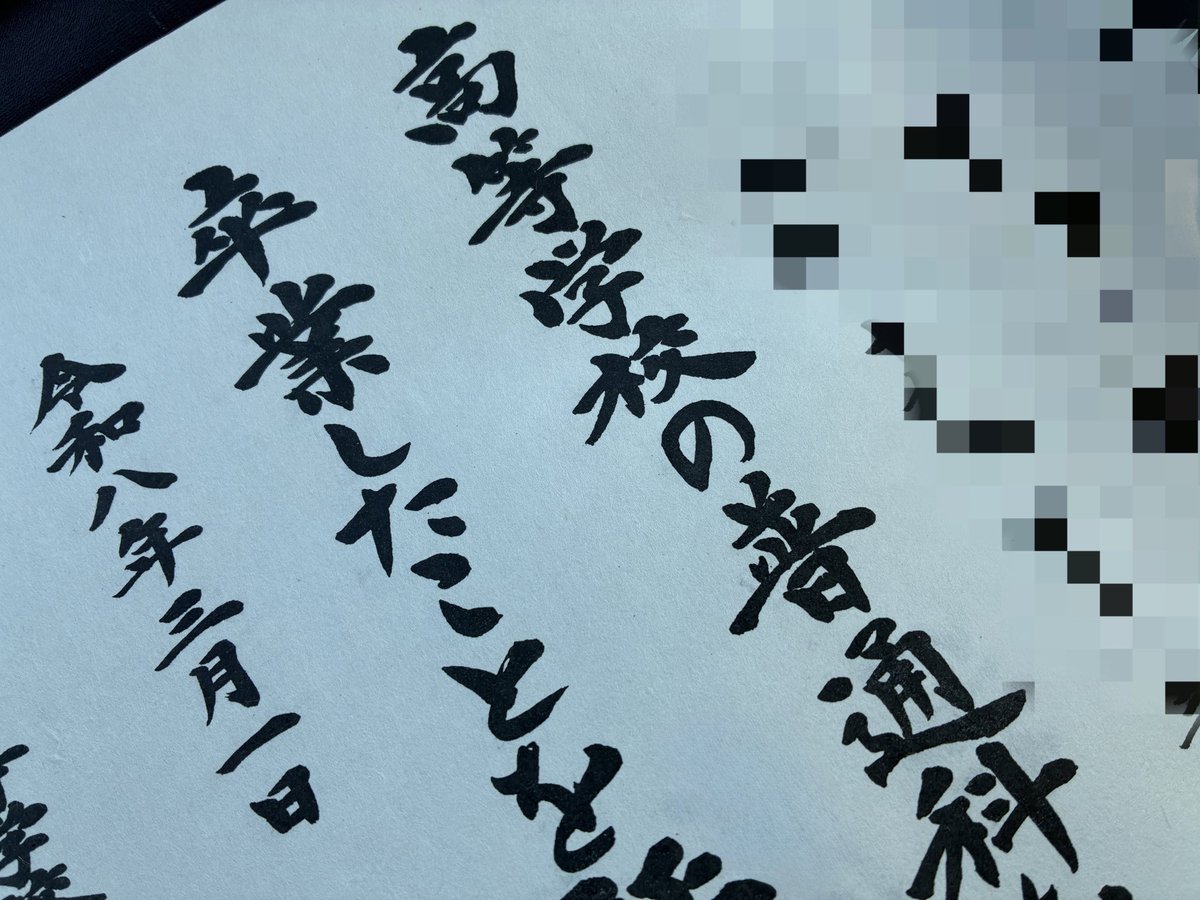 高等学校の普通科
卒業したことを
令和八年三月一日
学校